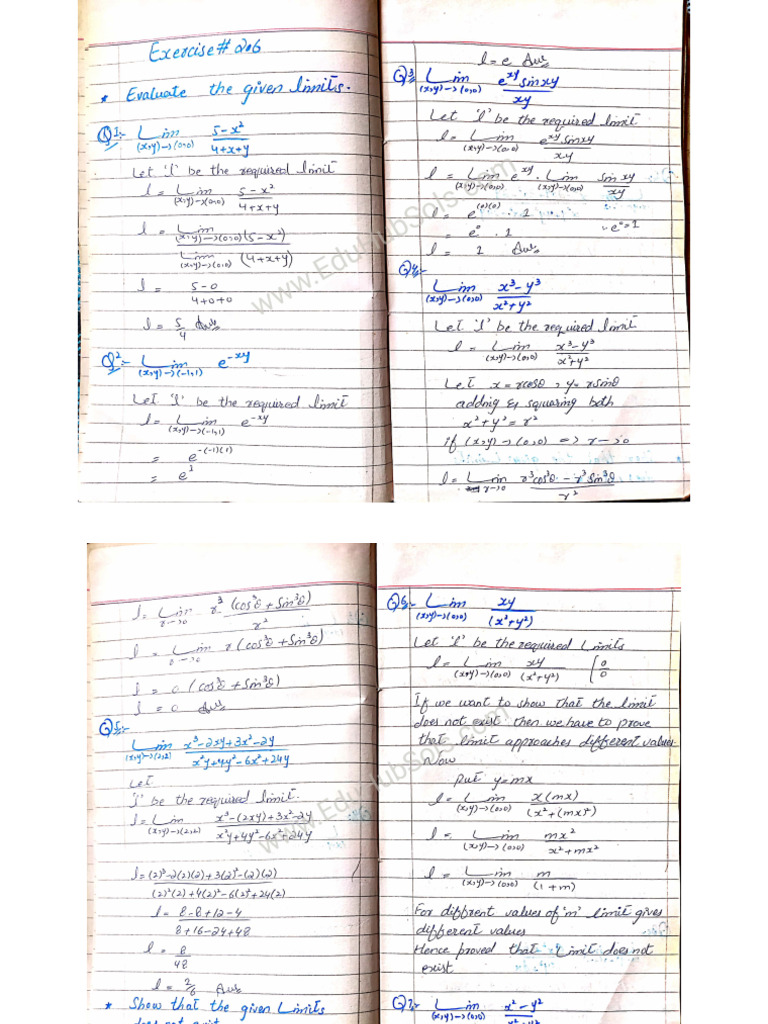 Exercise # 2.6
* Evaluate the given limits.
Q1:- Lim (x,y)->(0,0) 5-x² / 4+x+y
Let 'l' be the required limit
l = Lim (x,y)->(0,0) 5-x² / 4+x+y
l = Lim (x,y)->(0,0) (5-x²) / Lim (x,y)->(0,0) (4+x+y)
l = 5-0 / 4+0+0
l = 5/4 Ans
Q2:- Lim (x,y)->(-1,1) e^-xy
Let 'l' be the required limit
l = Lim (x,y)->(-1,1) e^-xy
= e^-(-1)(1)
= e^1
l = e Ans
Q3 Lim (x,y)->(0,0) e^xy sinxy / xy
Let 'l' be the required limit
l = Lim (x,y)->(0,0) e^xy sinxy / xy
l = Lim (x,y)->(0,0) e^xy . Lim (x,y)->(0,0) sinxy / xy
l = e^(0)(0) . 1
= e^0 . 1 ∵ e^0 = 1
l = 1 Ans
Q4:-
Lim (x,y)->(0,0) x³-y³ / x²+y²
Let 'l' be the required limit
l = Lim (x,y)->(0,0) x³-y³ / x²+y²
Let x = rcosθ , y = rsinθ
adding & squaring both
x²+y² = r²
if (x,y)->(0,0) => r->0
l = Lim r->0 r³cos³θ - r³Sin³θ / r²
l = Lim r->0 r³ (cos³θ + Sin³θ) / r²
l = Lim r->0 r (cos³θ + Sin³θ)
l = 0 (cos³θ + Sin³θ)
l = 0 Ans
Q5:-
Lim (x,y)->(2,2) x³-2xy+3x²-2y / x²y+4y²-6x²+24y
Let
'l' be the required limit.
l = Lim (x,y)->(2,2) x³-(2xy)+3x²-2y / x²y+4y²-6x²+24y
l = (2)³-2(2)(2)+3(2)²-(2)(2) / (2)²(2)+4(2)²-6(2)²+24(2)
l = 8-8+12-4 / 8+16-24+48
l = 8/48
l = 2/6 Ans
* Show that the given Limits
does not exist
Q6:- Lim (x,y)->(0,0) xy / (x²+y²)
Let 'l' be the required Limits
l = Lim (x,y)->(0,0) xy / (x²+y²) (0/0
If we want to show that the limit
does not exist then we have to prove
that limit approaches different values
Now
Put y=mx
l = Lim (x,y)->(0,0) x(mx) / (x²+(mx)²)
l = Lim (x,y)->(0,0) mx² / x²+mx²
l = Lim (x,y)->(0,0) m / (1+m)
For diffrent values of 'm' limit gives
different values
Hence proved that limit does not
exist
Q7:- Lim (x,y)->(0,0) x²-y² / x²+y²
www.EduHubSols.com
www.EduHubSols.com